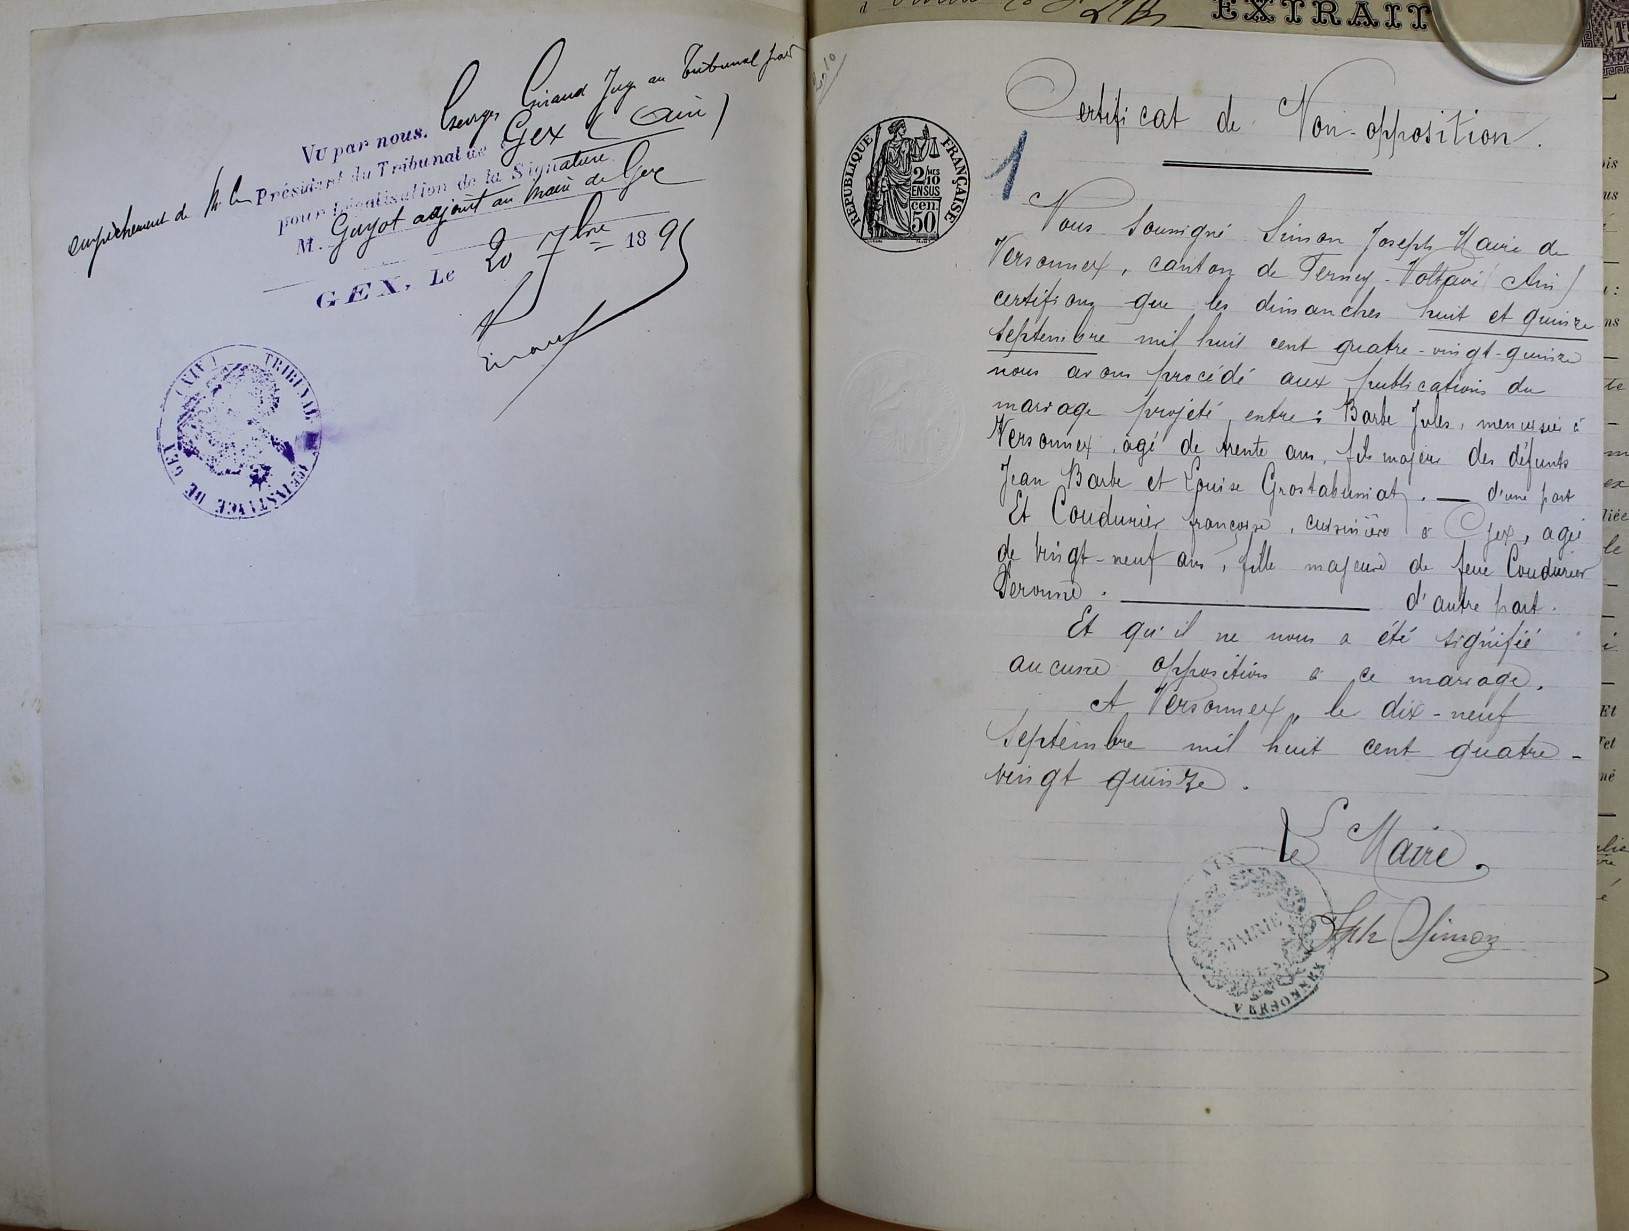 Georges Giraud Juge au Tribunal
Vu par nous.
empêchement de M. le Président du Tribunal de Gex (Ain)
pour Légalisation de la Signature
M. Guyot adjoint au Maire de Gex
GEX, Le 20 7bre 1895
Giraud
TRIBUNAL
INSTANCE DE GEX
(AIN)
EXTRAIT
Certificat de Non-opposition.
1
RÉPUBLIQUE FRANÇAISE
2/10
EN SUS
50 cen.
Nous soussigné Simon Joseph Maire de
Versonnex, canton de Ferney-Voltaire (Ain)
certifions que les dimanches huit et quinze
septembre mil huit cent quatre-vingt-quinze
nous avons procédé aux publications du
mariage projeté entre : Barbe Jules, menuisier à
Versonnex, agé de trente ans, fils majeur des défunts
Jean Barbe et Louise Grostabussiat. — d'une part
Et Coudurier françoise, cuisinière à Gex, agée
de vingt-neuf ans, fille majeure de feue Coudurier
Peronne. — d'autre part.
Et qu'il ne nous a été signifié
aucune opposition à ce mariage.
A Versonnex, le dix-neuf
septembre mil huit cent quatre-
vingt quinze.
Le Maire.
Jph Simon
AIN
MAIRIE
VERSONNEX